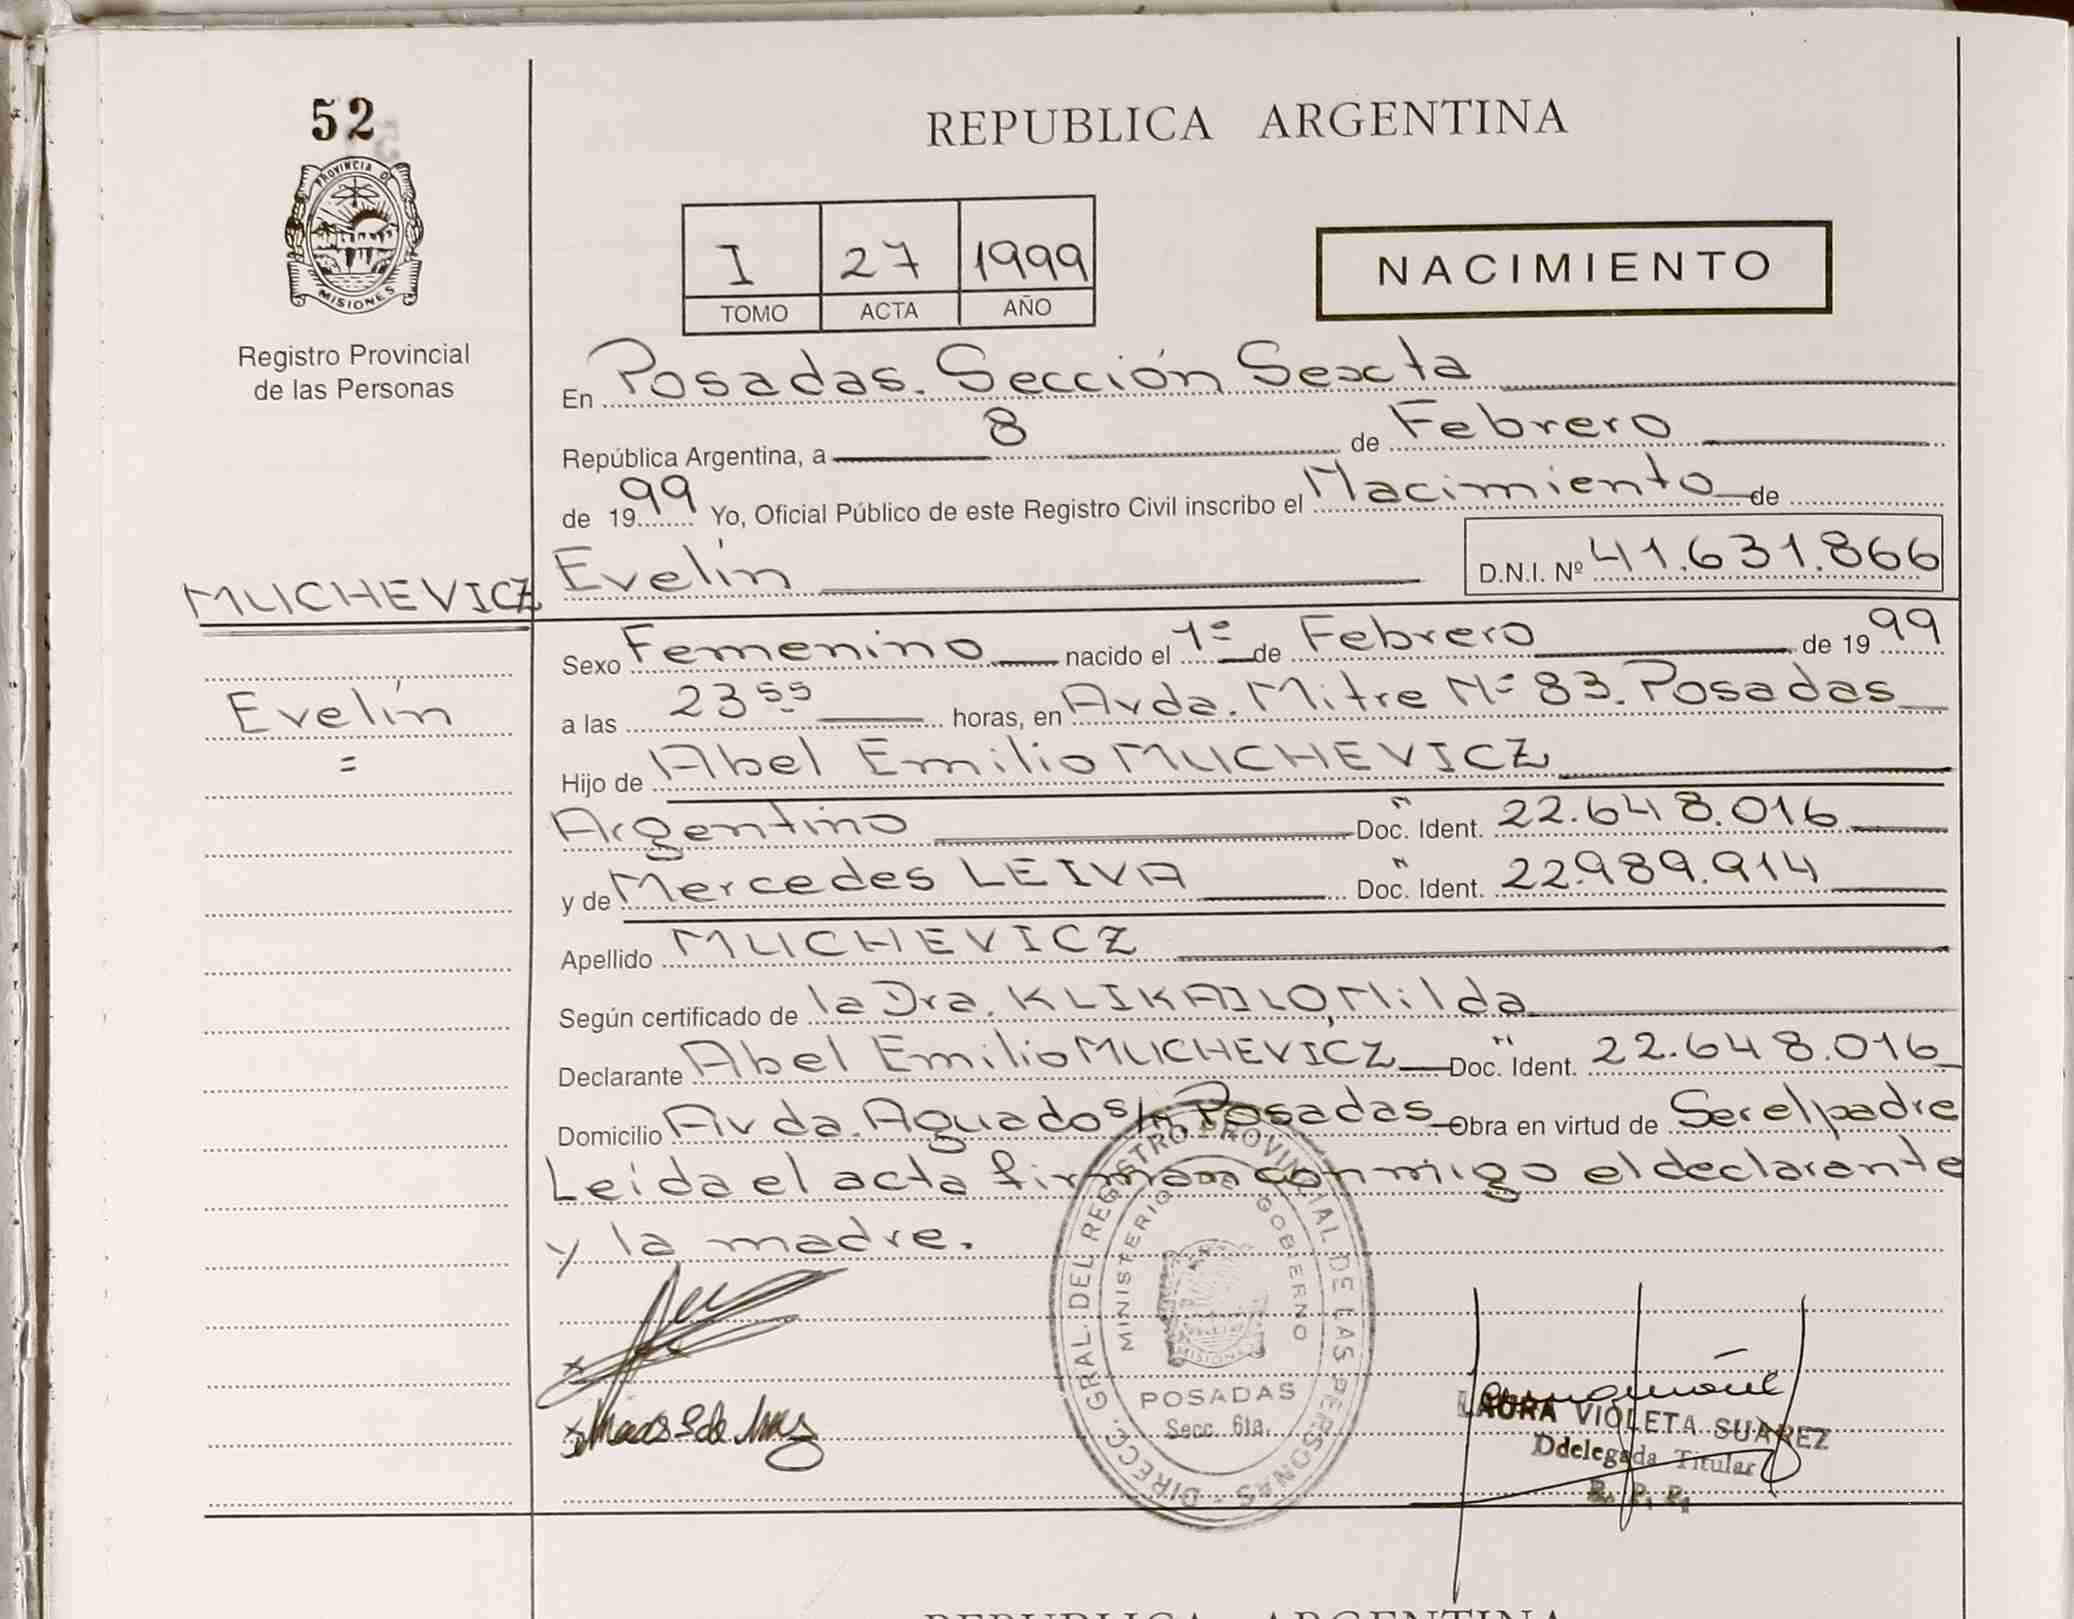 52
PROVINCIA DE
MISIONES
Registro Provincial
de las Personas
REPUBLICA ARGENTINA
I 27 1999
TOMO ACTA AÑO
NACIMIENTO
En Posadas. Sección Sexta
República Argentina, a 8 de Febrero
de 1999 Yo, Oficial Público de este Registro Civil inscribo el Nacimiento de
MUCHEVICZ Evelín D.N.I. Nº 41.631.866
Sexo Femenino nacido el 1º de Febrero de 1999
Evelín a las 23 55 horas, en Avda. Mitre Nº 83. Posadas
=
Hijo de Abel Emilio MUCHEVICZ
Argentino Doc. Ident. 22.648.016
y de Mercedes LEIVA Doc. Ident. 22.989.914
Apellido MUCHEVICZ
Según certificado de la Dra. KLIKAILO, Nilda
Declarante Abel Emilio MUCHEVICZ Doc. Ident. 22.648.016
Domicilio Avda. Aguado s/n, Posadas Obra en virtud de Ser el padre
Leída el acta firman conmigo el declarante
y la madre.
DIRECC. GRAL. DEL REGISTRO PROVINCIAL DE LAS PERSONAS -
MINISTERIO GOBIERNO
MISIONES
POSADAS
Secc. 6ta.
LAURA VIOLETA SUAREZ
Ddelegada Titular
R. P. P.
REPUBLICA ARGENTINA